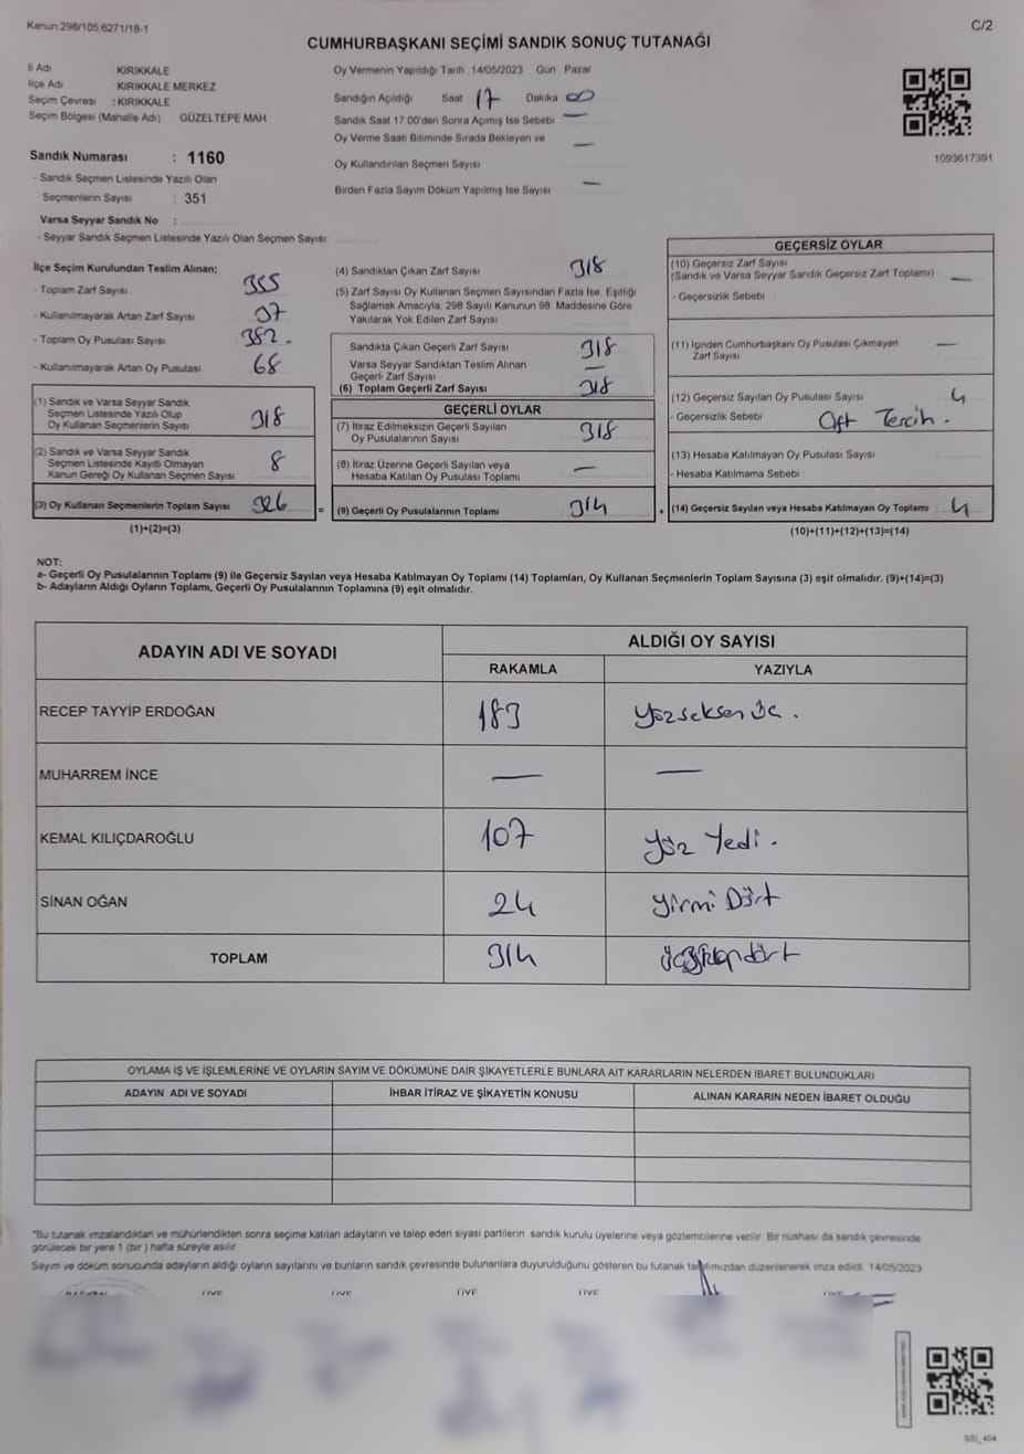 Kanun:298/105,6271/18-1
C/2
CUMHURBAŞKANI SEÇİMİ SANDIK SONUÇ TUTANAĞI
İl Adı KIRIKKALE
İlçe Adı KIRIKKALE MERKEZ
Seçim Çevresi : KIRIKKALE
Seçim Bölgesi (Mahalle Adı) GÜZELTEPE MAH
Sandık Numarası : 1160
- Sandık Seçmen Listesinde Yazılı Olan
Seçmenlerin Sayısı : 351
Varsa Seyyar Sandık No :
- Seyyar Sandık Seçmen Listesinde Yazılı Olan Seçmen Sayısı
Oy Vermenin Yapıldığı Tarih :14/05/2023 Gün : Pazar
Sandığın Açıldığı Saat 17 Dakika 00
Sandık Saat 17:00'den Sonra Açılmış İse Sebebi —
Oy Verme Saati Bitiminde Sırada Bekleyen ve
Oy Kullandırılan Seçmen Sayısı —
Birden Fazla Sayım Döküm Yapılmış İse Sayısı —
1093617391
İlçe Seçim Kurulundan Teslim Alınan:
- Toplam Zarf Sayısı 355
- Kullanılmayarak Artan Zarf Sayısı 37
- Toplam Oy Pusulası Sayısı 382.
- Kullanılmayarak Artan Oy Pusulası 68
(1) Sandık ve Varsa Seyyar Sandık
Seçmen Listesinde Yazılı Olup
Oy Kullanan Seçmenlerin Sayısı 318
(2) Sandık ve Varsa Seyyar Sandık
Seçmen Listesinde Kayıtlı Olmayan
Kanun Gereği Oy Kullanan Seçmen Sayısı 8
(3) Oy Kullanan Seçmenlerin Toplam Sayısı 326
(1)+(2)=(3)
(4) Sandıktan Çıkan Zarf Sayısı 318
(5) Zarf Sayısı Oy Kullanan Seçmen Sayısından Fazla İse, Eşitliği
Sağlamak Amacıyla, 298 Sayılı Kanunun 98. Maddesine Göre
Yakılarak Yok Edilen Zarf Sayısı
Sandıkta Çıkan Geçerli Zarf Sayısı 318
Varsa Seyyar Sandıktan Teslim Alınan
Geçerli Zarf Sayısı —
(6) Toplam Geçerli Zarf Sayısı 318
GEÇERLİ OYLAR
(7) İtiraz Edilmeksizin Geçerli Sayılan
Oy Pusulalarının Sayısı 318
(8) İtiraz Üzerine Geçerli Sayılan veya
Hesaba Katılan Oy Pusulası Toplamı —
= (9) Geçerli Oy Pusulalarının Toplamı 314
GEÇERSİZ OYLAR
(10) Geçersiz Zarf Sayısı
(Sandık ve Varsa Seyyar Sandık Geçersiz Zarf Toplamı) —
- Geçersizlik Sebebi
(11) İçinden Cumhurbaşkanı Oy Pusulası Çıkmayan
Zarf Sayısı —
(12) Geçersiz Sayılan Oy Pusulası Sayısı 4
- Geçersizlik Sebebi Çift Tercih.
(13) Hesaba Katılmayan Oy Pusulası Sayısı
- Hesaba Katılmama Sebebi
+ (14) Geçersiz Sayılan veya Hesaba Katılmayan Oy Toplamı 4
(10)+(11)+(12)+(13)=(14)
NOT:
a- Geçerli Oy Pusulalarının Toplamı (9) ile Geçersiz Sayılan veya Hesaba Katılmayan Oy Toplamı (14) Toplamları, Oy Kullanan Seçmenlerin Toplam Sayısına (3) eşit olmalıdır. (9)+(14)=(3)
b- Adayların Aldığı Oyların Toplamı, Geçerli Oy Pusulalarının Toplamına (9) eşit olmalıdır.
ADAYIN ADI VE SOYADI
ALDIĞI OY SAYISI
RAKAMLA YAZIYLA
RECEP TAYYİP ERDOĞAN 183 Yüzseksen üç.
MUHARREM İNCE — —
KEMAL KILIÇDAROĞLU 107 Yüz Yedi.
SİNAN OĞAN 24 Yirmi Dört
TOPLAM 314
OYLAMA İŞ VE İŞLEMLERİNE VE OYLARIN SAYIM VE DÖKÜMÜNE DAİR ŞİKAYETLERLE BUNLARA AİT KARARLARIN NELERDEN İBARET BULUNDUKLARI
ADAYIN ADI VE SOYADI İHBAR İTİRAZ VE ŞİKAYETİN KONUSU ALINAN KARARIN NEDEN İBARET OLDUĞU
"Bu tutanak imzalandıktan ve mühürlendikten sonra seçime katılan adayların ve talep eden siyasi partilerin sandık kurulu üyelerine veya gözlemcilerine verilir. Bir nüshası da sandık çevresinde
görülecek bir yere 1 (bir) hafta süreyle asılır
Sayım ve döküm sonucunda adayların aldığı oyların sayılarını ve bunların sandık çevresinde bulunanlara duyurulduğunu gösteren bu tutanak tarafımızdan düzenlenerek imza edildi. 14/05/2023
ÜYE ÜYE ÜYE ÜYE